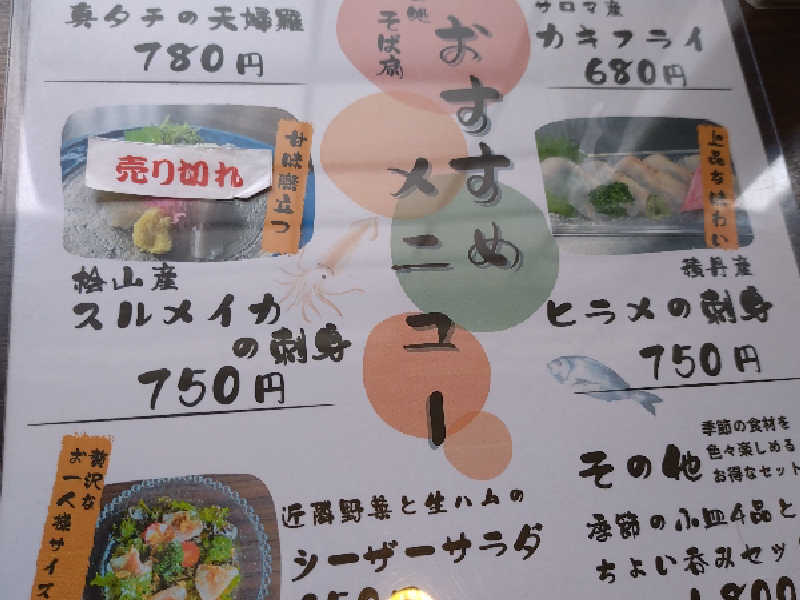 真タチの天婦羅
780円
そば廊
おすすめ
メニュー
サロマ産
カキフライ
680円
甘味際立つ
売り切れ
桧山産
スルメイカ
の刺身
750円
上品な味わい
積丹産
ヒラメの刺身
750円
贅沢な
お一人様サイズ
近隣野菜と生ハムの
シーザーサラダ
その他
季節の食材を
色々楽しめる
お得なセット
季節の小皿4品と
ちょい呑みセッ